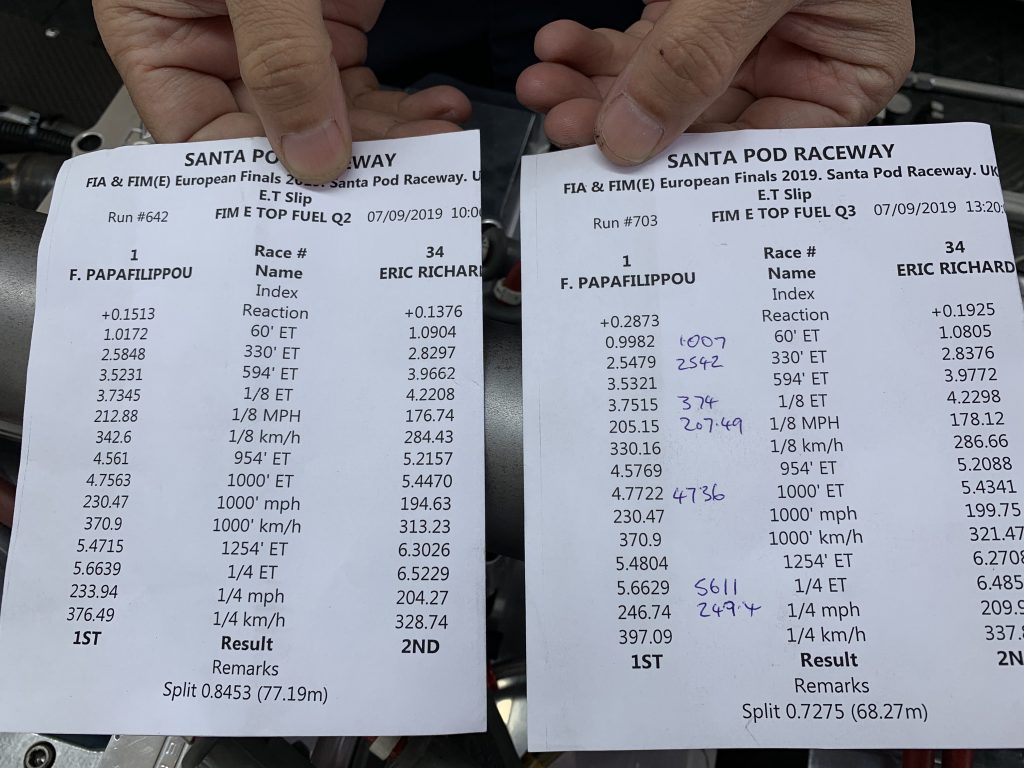 SANTA PO WAY
FIA & FIM(E) European Finals 2019. Santa Pod Raceway. U
E.T Slip
Run #642 FIM E TOP FUEL Q2 07/09/2019 10:0
1 Race # 34
F. PAPAFILIPPOU Name ERIC RICHARD
Index
+0.1513 Reaction +0.1376
1.0172 60' ET 1.0904
2.5848 330' ET 2.8297
3.5231 594' ET 3.9662
3.7345 1/8 ET 4.2208
212.88 1/8 MPH 176.74
342.6 1/8 km/h 284.43
4.561 954' ET 5.2157
4.7563 1000' ET 5.4470
230.47 1000' mph 194.63
370.9 1000' km/h 313.23
5.4715 1254' ET 6.3026
5.6639 1/4 ET 6.5229
233.94 1/4 mph 204.27
376.49 1/4 km/h 328.74
1ST Result 2ND
Remarks
Split 0.8453 (77.19m)
SANTA POD RACEWAY
FIA & FIM(E) European Finals 2019. Santa Pod Raceway. UK
E.T Slip
Run #703 FIM E TOP FUEL Q3 07/09/2019 13:20:
1 Race # 34
F. PAPAFILIPPOU Name ERIC RICHARD
Index
+0.2873 Reaction +0.1925
0.9982 1.007 60' ET 1.0805
2.5479 2542 330' ET 2.8376
3.5321 594' ET 3.9772
3.7515 374 1/8 ET 4.2298
205.15 207.49 1/8 MPH 178.12
330.16 1/8 km/h 286.66
4.5769 954' ET 5.2088
4.7722 4736 1000' ET 5.4341
230.47 1000' mph 199.75
370.9 1000' km/h 321.47
5.4804 1254' ET 6.2708
5.6629 5611 1/4 ET 6.485
246.74 249.4 1/4 mph 209.9
397.09 1/4 km/h 337.8
1ST Result 2N
Remarks
Split 0.7275 (68.27m)